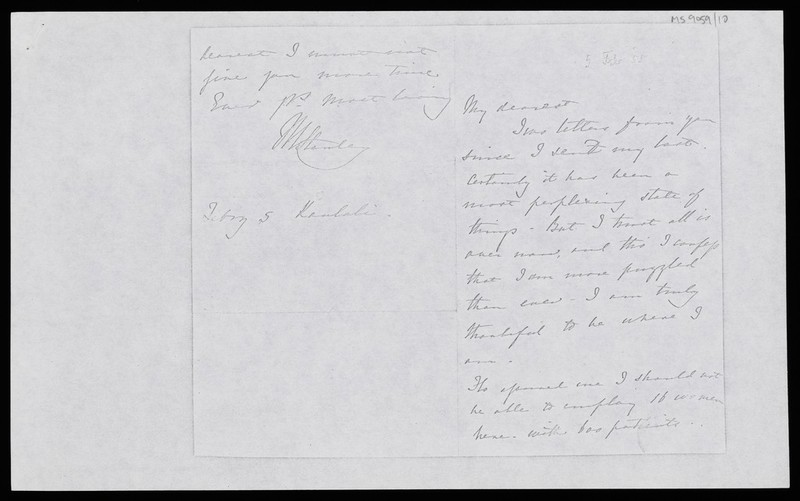 MS 9059/10
dearest I must not
give you more time
Ever yrs most loving
MStanley
Feby 5 Koulali.
5 Feb 55
My dearest
Two letters from you
since I sent my last.
Certainly it has been a
most perplexing state of
things - But I trust all is
over now, and tho' I confess
that I am more puzzled
than ever - I am truly
thankful to be where I
am.
me I should not
be able to employ 16 women
here. with 600 patients..